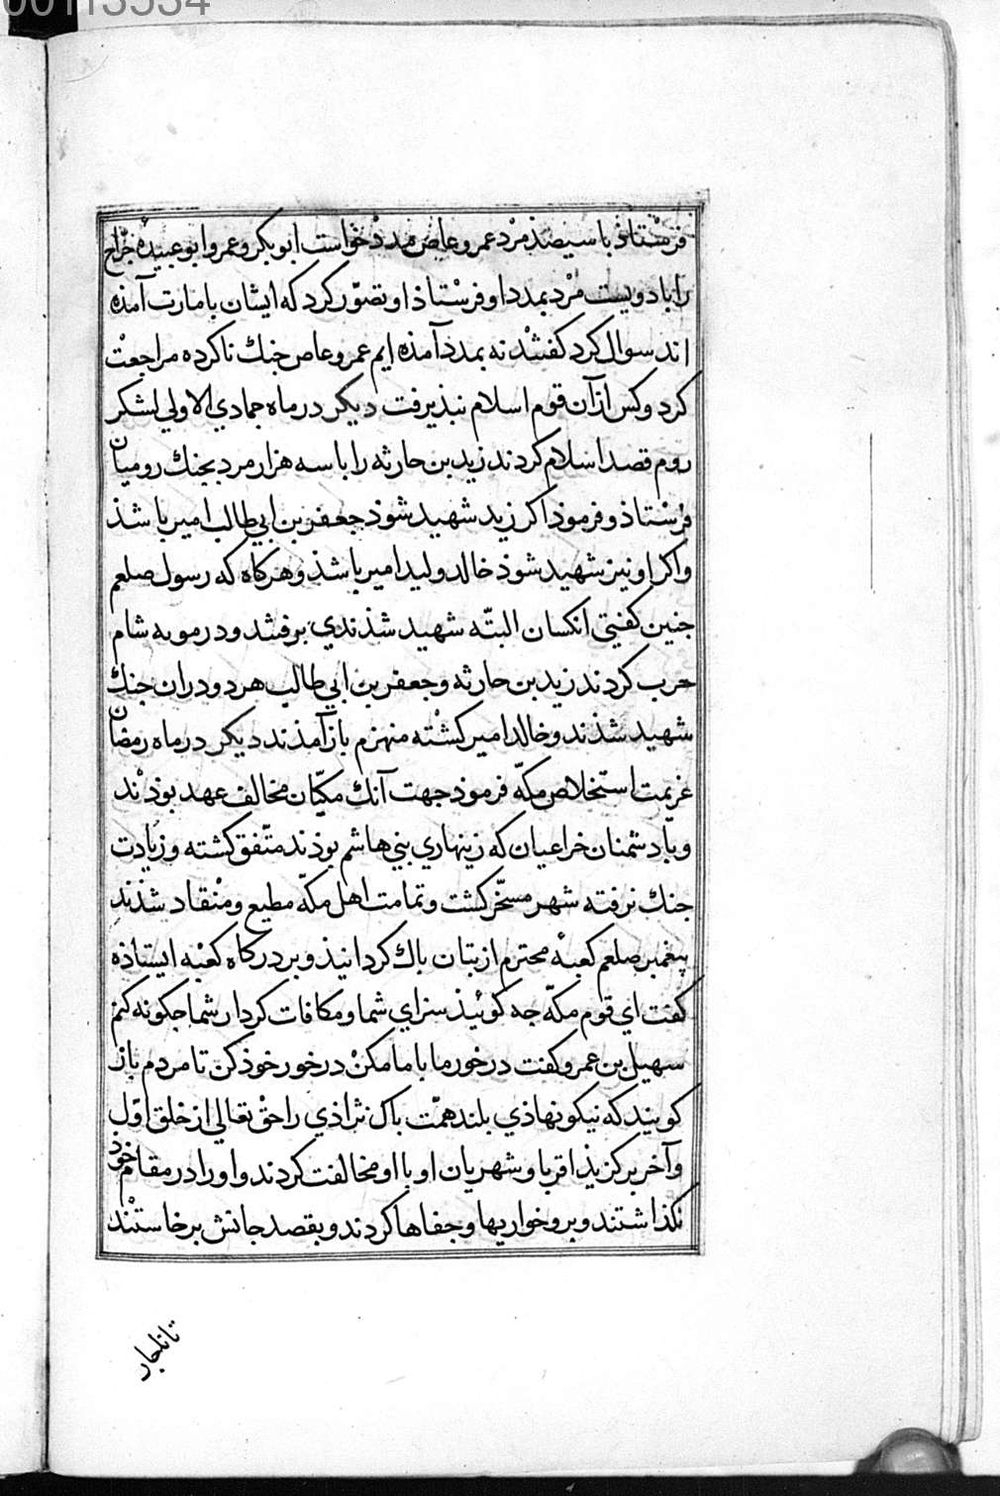 00113534
فرستاذ با سیصد مرد عمرو عاص مدد خواست ابوبکر و عمر و ابو عبیده جرّاح
را با دویست مرد بمدد او فرستاذ او تصوّر کرد که ایشان بامارت آمذه
اند سوال کرد کفتند نه بمدد آمذه ایم عمرو عاص جنك ناکرده مراجعت
کرد و کس از آن قوم اسلام نبذیرفت دیکر در ماه جمادي الاولي لشکر
روم قصد اسلام کردند زید بن حارثه را با سه هزار مرد بجنك رومیان
فرستاذ و فرموذ اکر زید شهید شوذ جعفر بن ابي طالب امیر باشذ
واکر او نیز شهید شوذ خالد ولید امیر باشذ و هرکاه که رسول صلعم
جنین کفتي انکسان البتّه شهید شذندي برفتند و در موته شام
حرب کردند زید بن حارثه و جعفر بن ابي طالب هر دو در ان جنك
شهید شذند و خالد امیر کشته منهزم باز آمذند دیکر در ماه رمضان
عزیمت استخلاص مکّه فرموذ جهت آنك مکیّان مخالف عهد بوذند
و با دشمنان خزاعیان که زینهاري بني هاشم بوذند متّفق کشته و زیادت
جنك نرفته شهر مسخّر کشت و تمامت اهل مکّه مطیع و منقاد شذند
پیغمبر صلعم کعبه محترم از بتان باك کردانیذ و بر درکاه کعبه ایستاذه
کفت اي قوم مکّه جه کوئیذ سزاي شما و مکافات کردار شما جکونه کنم
سهیل بن عمرو کفت در خور ما با ما مکن در خور خوذ کن تا مردم باز
کویند که نیکو نهاذي بلند همّت باك نژاذي را حق تعالي از خلق اوّل
و آخر برکزیذ اقربا و شهریان او با او مخالفت کردند و او را در مقام خود
نکذاشتند و برو خواریها و جفاها کردند و بقصد جانش برخاستند
تا ناجار